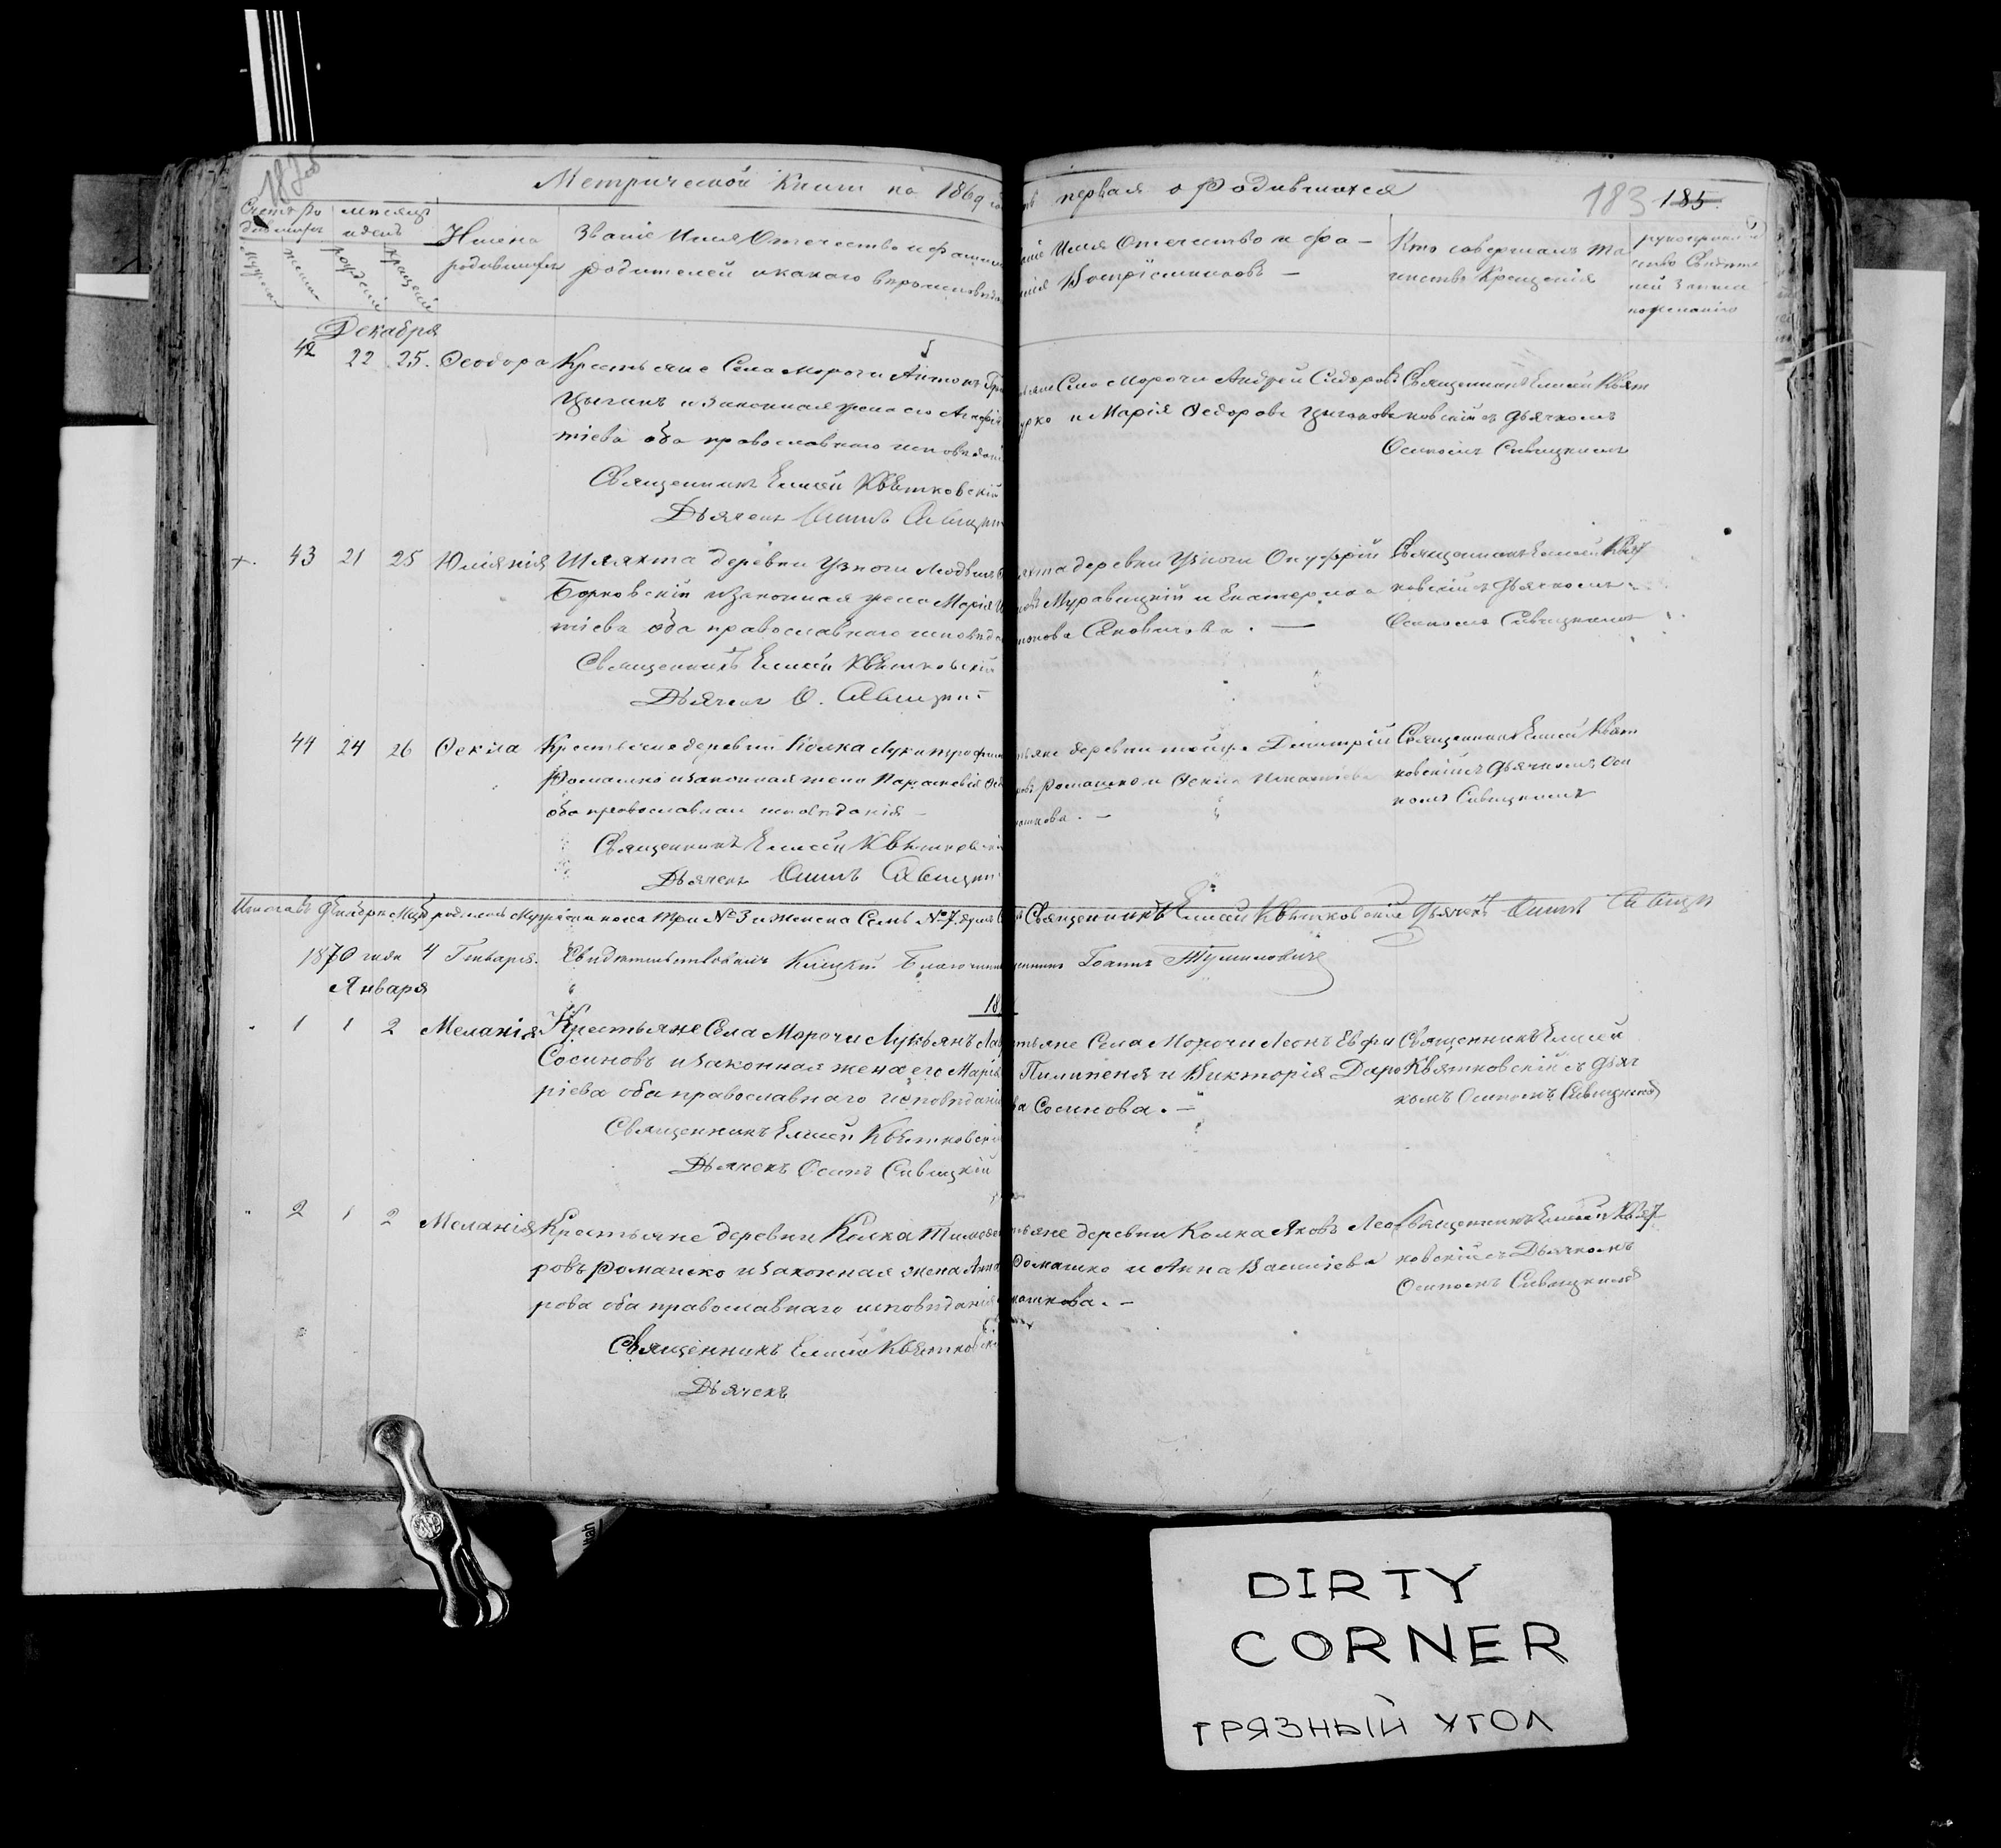 Метрической Книги на 1869 го
ть первая о Родившихся
183 185
Счетъ ро
дившихъ
Мѣсяцъ
и день
Имена
родившихъ
Званіе Имя Отечество и Фамил
родителей и какого вѣроисповѣда
ніе Имя Отечество и фа-
милія Воспріемниковъ —
Кто совершалъ та
инство Крещенія
рукоприклад
ство Свидѣте
лей записи
по желанію
рожденія
крещенія
Декабря
42 22 25. Ѳеодора Крестьяне Села Морочи Антонъ Гри
Цыганъ и законная жена его Агафія
тіева оба православнаго исповѣдані
Священникъ Елисей Квѣтковскій
Дьячекъ Осипъ Савицкі
яне Села Морочи Андрей Сидоровъ
урко и Марія Ѳедорова Цыганова
Священникъ Елисей Квят
ковскій съ дьячкомъ
Осипомъ Савицкимъ
+. 43 21 25 Юліянія Шляхта деревни Узноги Людвигъ
Борковскій и законная жена Марія И
тіева оба православнаго исповѣда
Священникъ Елисей Квѣтковскій
Дьячекъ О. Савицкій
яхта деревни Узноги Онуфрій
новъ Муравицкій и Екатерина
тонова Сановичова. —
Священникъ Елисей Квят
ковскій съ дьячкомъ
Осипомъ Савицкимъ
44 24 26 Ѳекла Крестьяне деревни Колка Лука Трофим
Ромашко и законная жена Параскевія Ѳед
оба православнаго исповѣданія —
Священникъ Елисей Квѣтковскій
Дьячекъ Осипъ Савицкій
тьяне деревни тойже Димитрій
ровъ Ромашко и Ѳекла Игнатіева
машкова. —
Священникъ Елисей Квят
ковскій съ дьячкомъ Оси
помъ Савицкимъ
Итого въ Декабрѣ Мцѣ родилось Мужеска пола три № 3 и Женска Семь № 7.
Священникъ Елисей Квѣтковскій Дьячекъ Осипъ Савицк
1870 года 4 Генваря. Свидѣтельствовалъ Клецкій Благочин
щенникъ Іоаннъ Тумиловичъ
Января
18
1 1 2 Меланія Крестьяне Села Морочи Лукьянъ Лав
Сосиновъ и законная жена его Марія
ріева оба православнаго исповѣдані
Священникъ Елисей Квѣтковскі
Дьячекъ Осипъ Савицкій
тьяне Села Морочи Леонъ Евфи
Пилипеня и Викторія Даро
ва Сосинова. —
Священникъ Елисей
Квятковскій съ дьяч
комъ Осипомъ Савицкимъ
2 1 2 Меланія Крестьяне деревни Колка Тимоѳе
ровъ Ромашко и законная жена Анна
рова оба православнаго исповѣданія
Священникъ Елисей Квѣтковскі
Дьячекъ
тьяне деревни Колка Яковъ Лео
Ромашко и Анна Василіева
машкова. —
Священникъ Елисей Квят
ковскій съ Дьячкомъ
Осипомъ Савицкимъ
DIRTY
CORNER
ГРЯЗНЫЙ УГОЛ